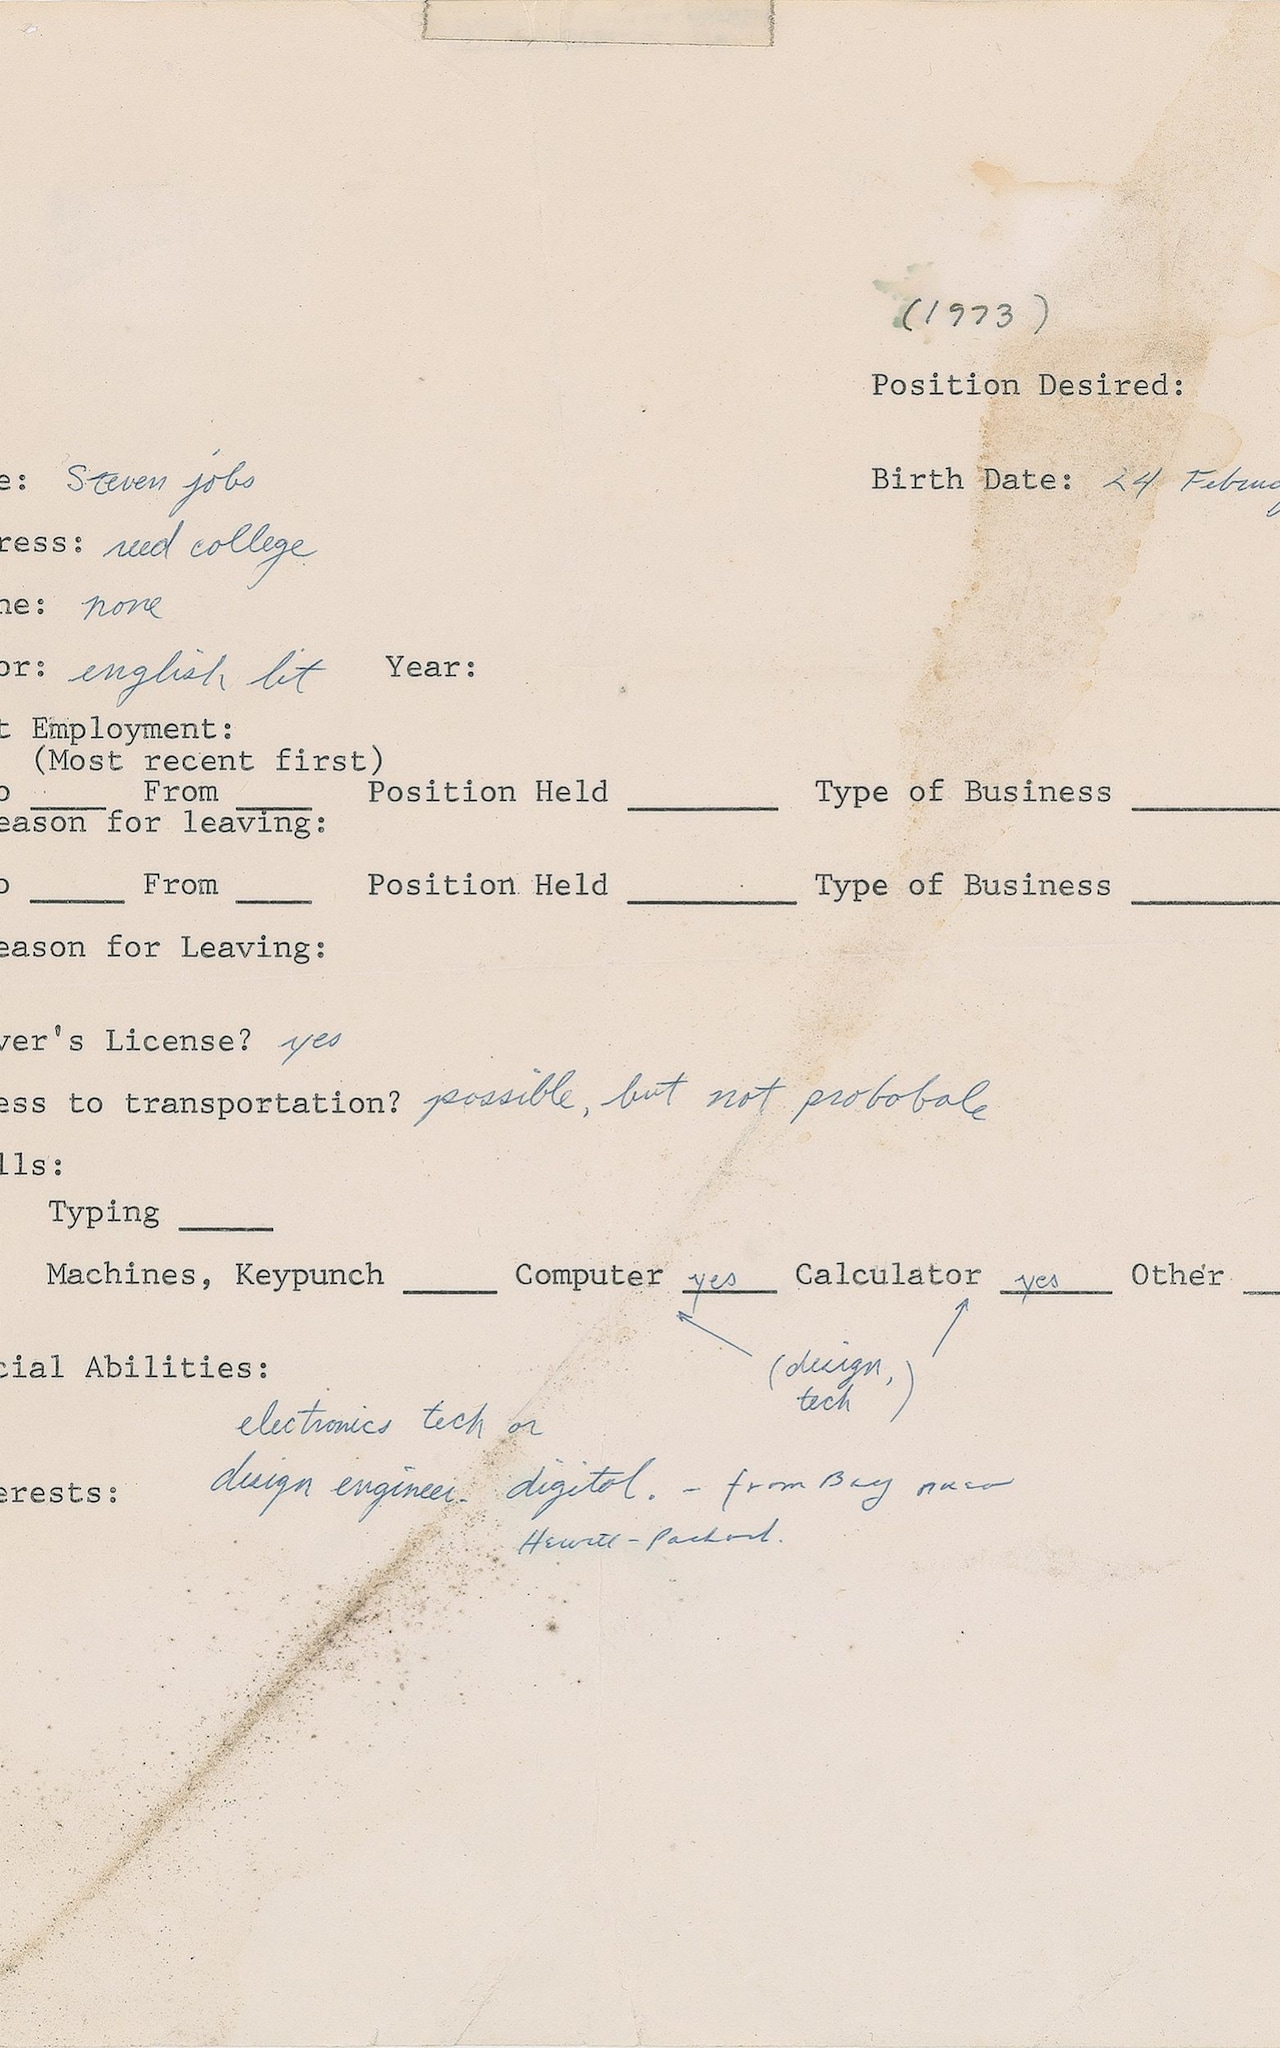 (1973)
Position Desired:
e: Steven jobs Birth Date: 24 Februa
ress: reed college
ne: none
or: english lit Year:
t Employment:
(Most recent first)
o ____ From ____ Position Held ________ Type of Business ________
eason for leaving:
o _____ From ____ Position Held _________ Type of Business ________
eason for Leaving:
ver's License? yes
ess to transportation? possible, but not probobale
lls:
Typing _____
Machines, Keypunch _____ Computer yes Calculator yes Other __
(design,
tech)
cial Abilities:
electronics tech or
erests: design engineer. digital. - from Bay area
Hewitt-Packard.